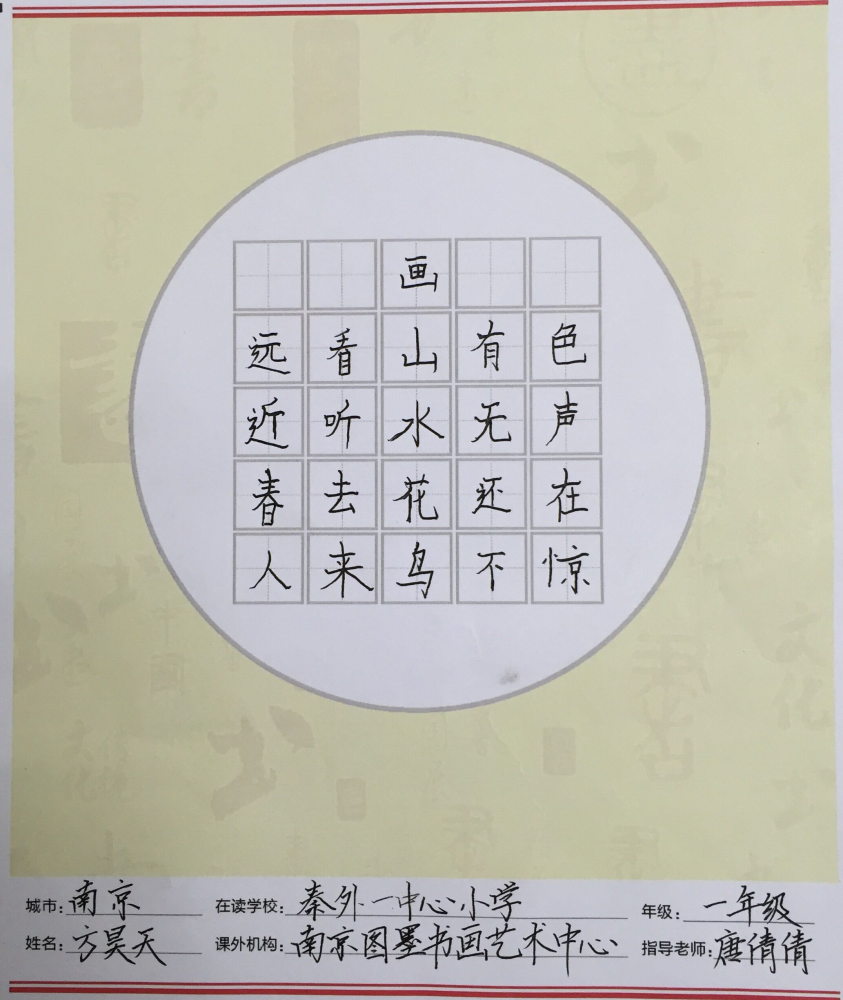 画
远看山有色
近听水无声
春去花还在
人来鸟不惊
城市: 南京 在读学校: 秦外一中心小学 年级: 一年级
姓名: 方昊天 课外机构: 南京图墨书画艺术中心 指导老师: 唐倩倩